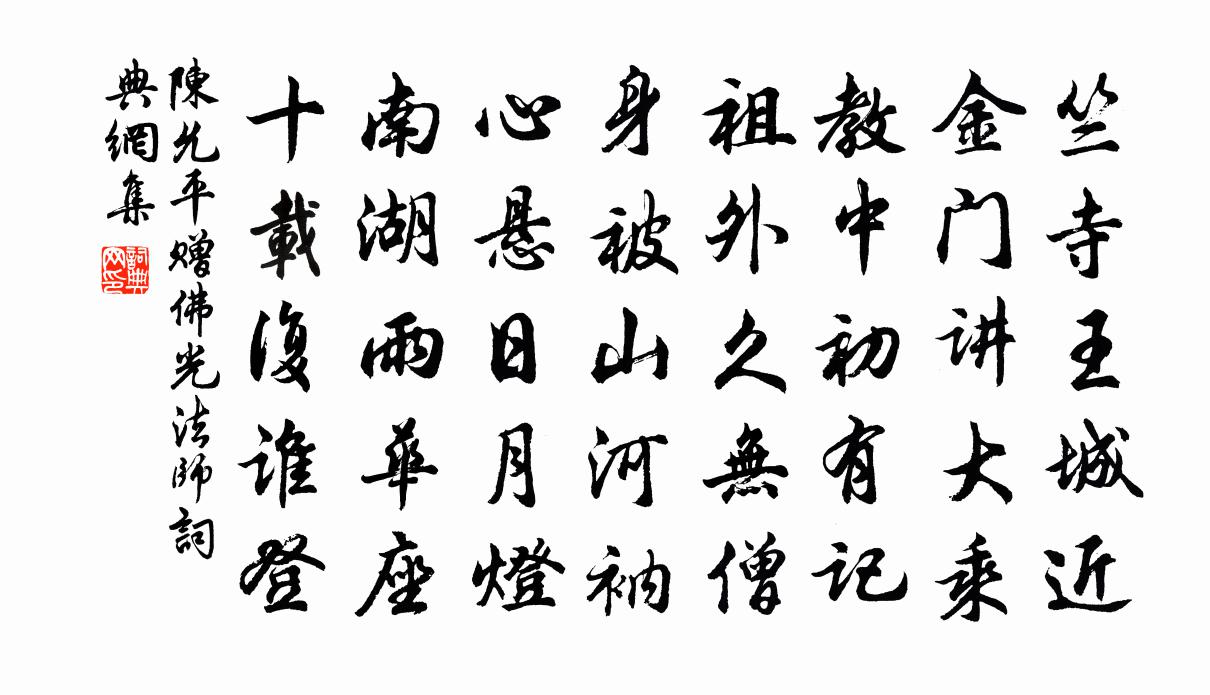 竺寺王城近
金门讲大乘
教中初有记
祖外久無僧
身被山河衲
心悬日月燈
南湖雨華座
十載復谁登
陳允平赠佛光法师詞
典網集
詞典
网印